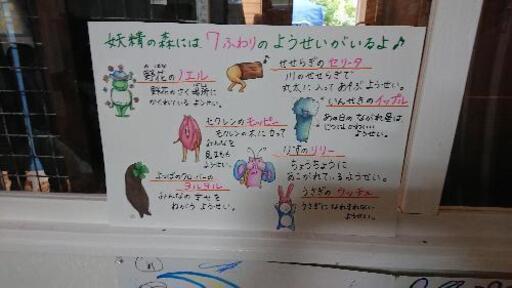 妖精の森には 7ふわりの ようせいがいるよ♪
野花のノエル
野花のさく場所に
かくれている ようせい。
モクレンのモッピー
モクレンの木に立って
みんなを
見まもる
ようせい。
よつばのクローバーの
ヨルヨル
みんなの幸せを
ねがう ようせい。
せせらぎのセリータ
川のせせらぎで
丸太に入って あそぶ ようせい。
いんせきのイップル
あの日の ながれ星は
じつは
ようせい。
りすのリリー
ちょうちょうに
あこがれている ようせい。
うさぎの ウッチェ
うさぎに なりきれない
ようせい。